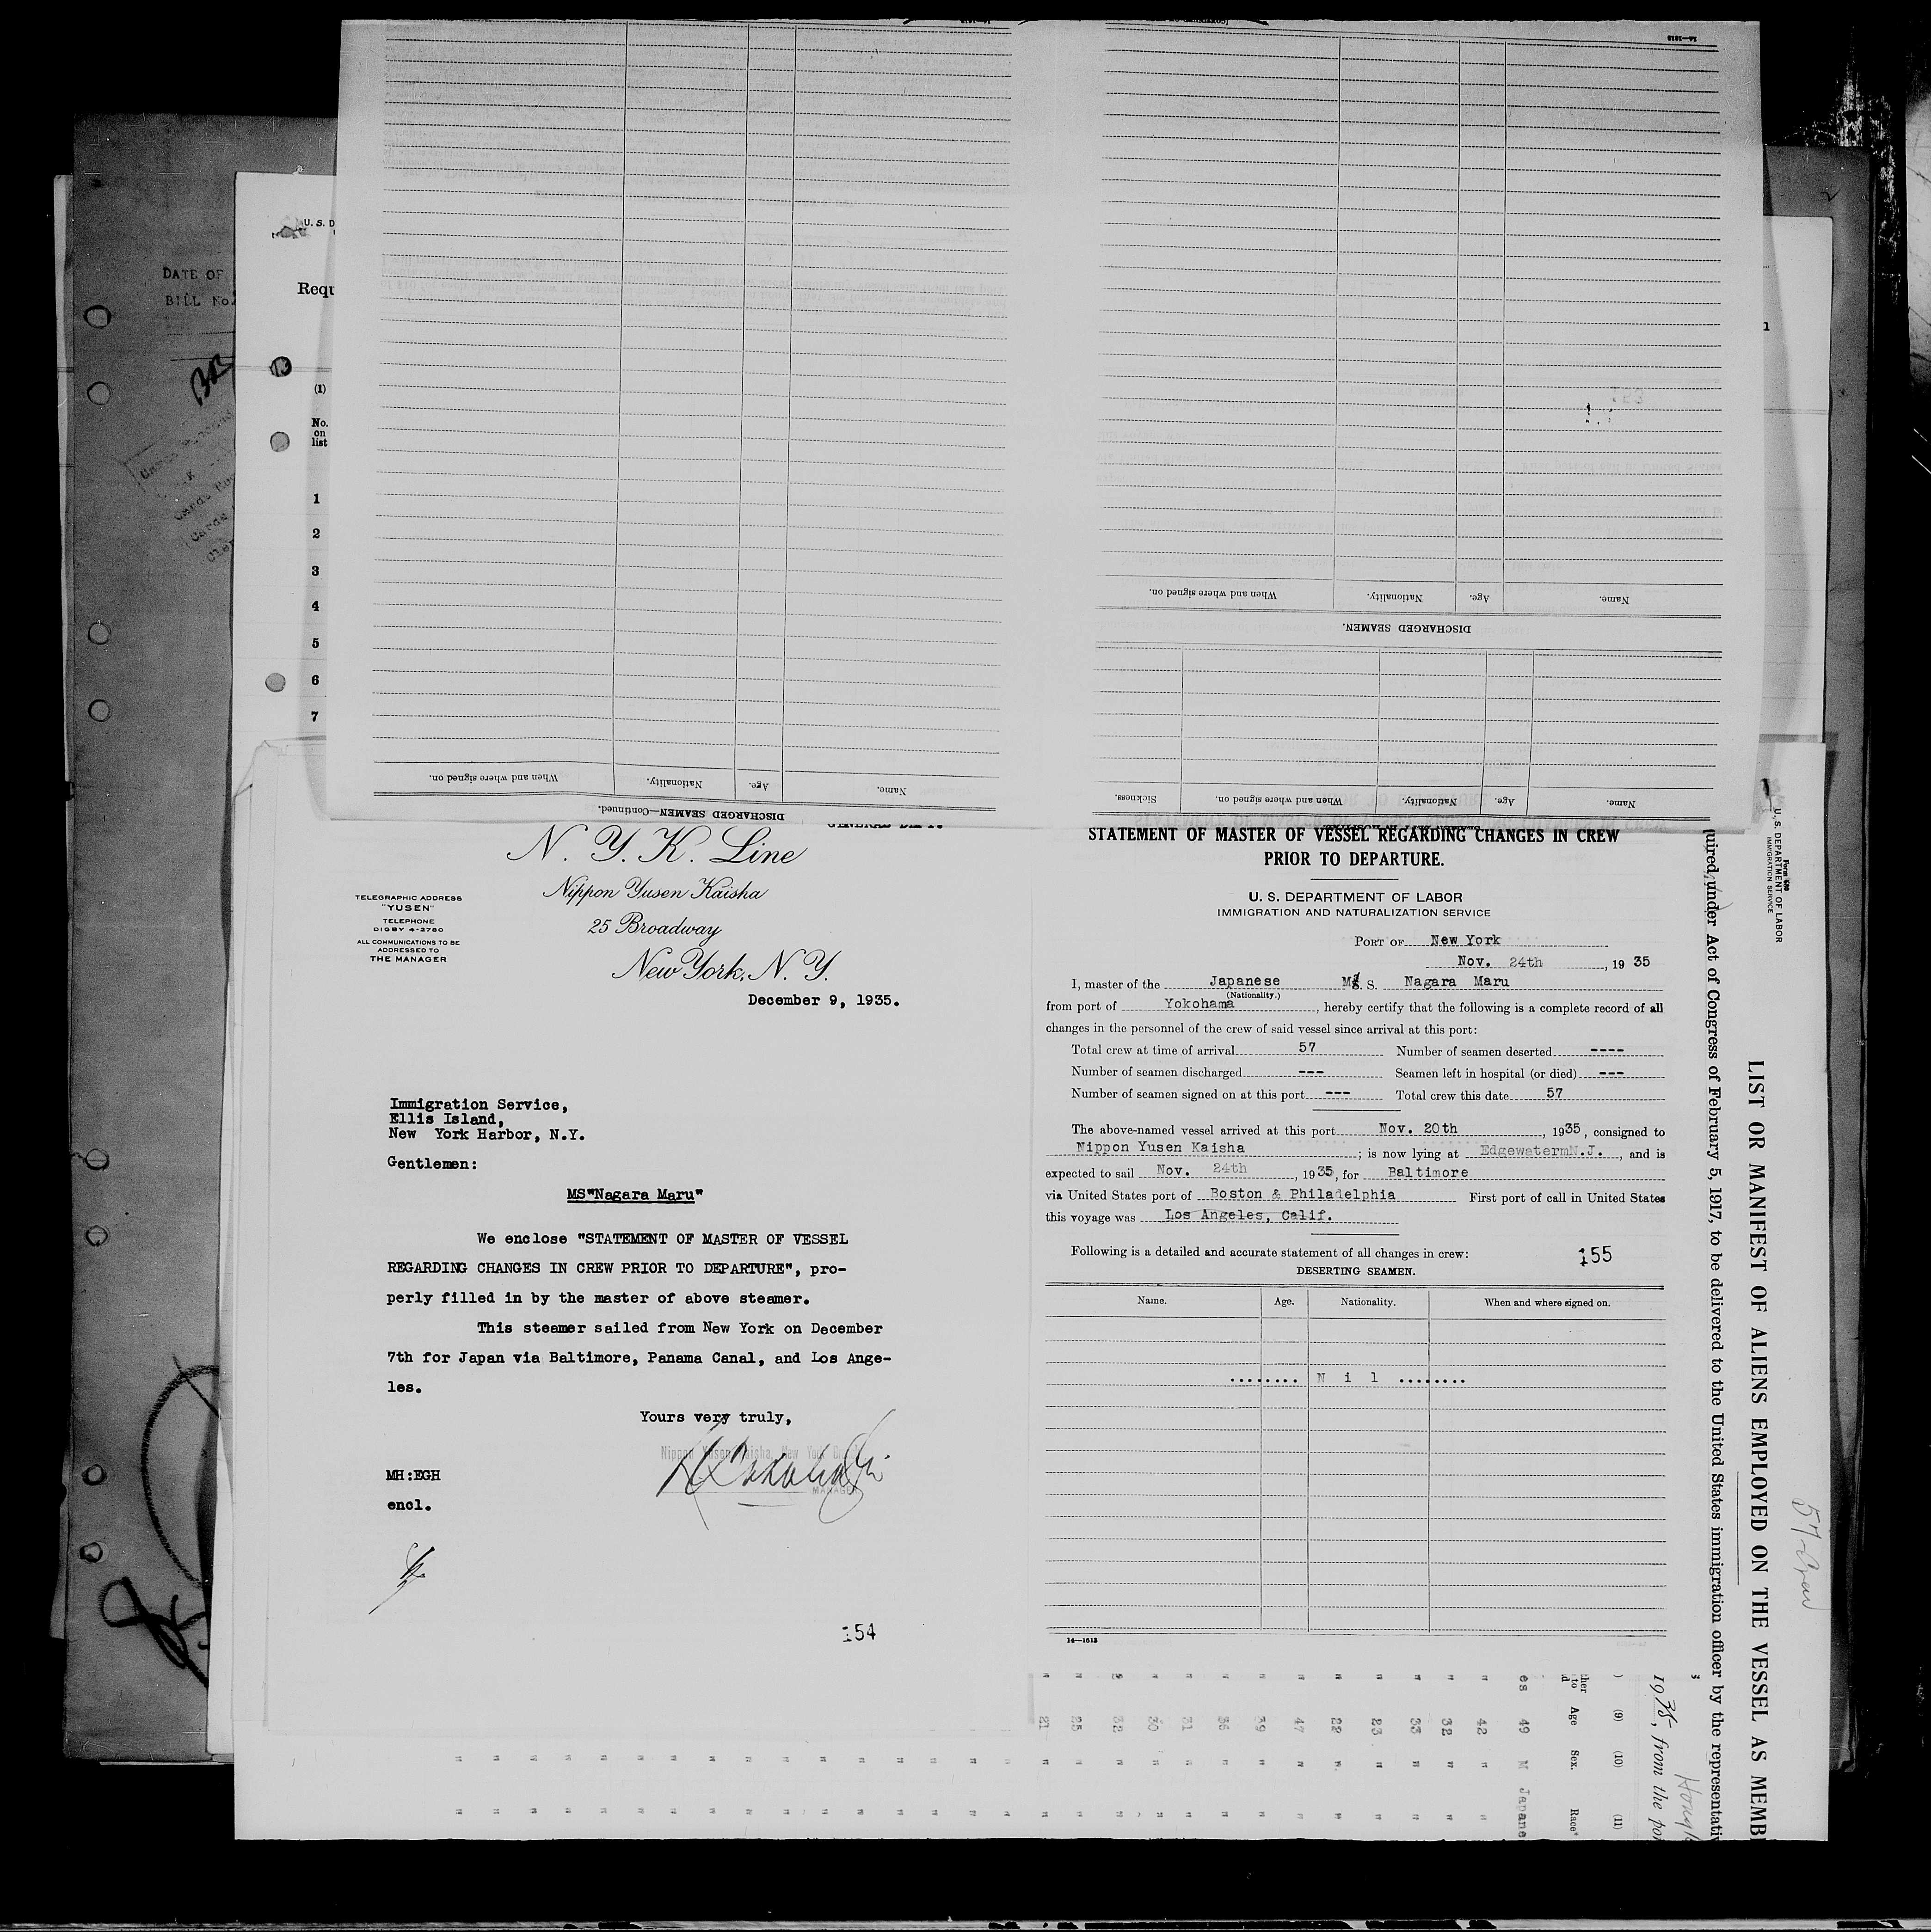 14—1613
DATE OF
BILL No.
U. S. D
Requ
(1)
No.
on
list
1
2
3
4
5
6
7
When and where signed on.
Nationality.
Age.
Name.
DISCHARGED SEAMEN.
Sickness.
When and where signed on.
Nationality.
Age.
Name.
When and where signed on.
Nationality.
Age.
Name.
DISCHARGED SEAMEN—Continued.
GENERAL DEPT.
N. Y. K. Line
Nippon Yusen Kaisha
25 Broadway
New York, N. Y.
TELEGRAPHIC ADDRESS
"YUSEN"
TELEPHONE
DIGBY 4-2780
ALL COMMUNICATIONS TO BE
ADDRESSED TO
THE MANAGER
December 9, 1935.
Immigration Service,
Ellis Island,
New York Harbor, N.Y.
Gentlemen:
MS"Nagara Maru"
We enclose "STATEMENT OF MASTER OF VESSEL
REGARDING CHANGES IN CREW PRIOR TO DEPARTURE", pro-
perly filled in by the master of above steamer.
This steamer sailed from New York on December
7th for Japan via Baltimore, Panama Canal, and Los Ange-
les.
Yours very truly,
Nippon Yusen Kaisha, New York
MANAGER
MH:EGH
encl.
154
STATEMENT OF MASTER OF VESSEL REGARDING CHANGES IN CREW
PRIOR TO DEPARTURE.
U. S. DEPARTMENT OF LABOR
IMMIGRATION AND NATURALIZATION SERVICE
PORT OF New York
Nov. 24th, 19 35
I, master of the Japanese M. S. Nagara Maru
(Nationality.)
from port of Yokohama, hereby certify that the following is a complete record of all
changes in the personnel of the crew of said vessel since arrival at this port:
Total crew at time of arrival 57 Number of seamen deserted ----
Number of seamen discharged --- Seamen left in hospital (or died) ---
Number of seamen signed on at this port --- Total crew this date 57
The above-named vessel arrived at this port Nov. 20th, 1935, consigned to
Nippon Yusen Kaisha; is now lying at EdgewatermN.J., and is
expected to sail Nov. 24th, 1935, for Baltimore
via United States port of Boston & Philadelphia First port of call in United States
this voyage was Los Angeles, Calif.
Following is a detailed and accurate statement of all changes in crew: 155
DESERTING SEAMEN.
Name. Age. Nationality. When and where signed on.
........ N i l ........
14—1613
Form 680
U. S. DEPARTMENT OF LABOR
IMMIGRATION SERVICE
LIST OR MANIFEST OF ALIENS EMPLOYED ON THE VESSEL AS MEMB
uired under Act of Congress of February 5, 1917, to be delivered to the United States immigration officer by the representativ
57-Crew
1935, from the por
(9) (10) (11)
Age Sex. Race*
es 49 M Japane
" 42 " "
" 32 " "
" 33 " "
" 23 " "
" 22 " "
" 47 " "
" 39 " "
" 36 " "
" 31 " "
" 30 " "
" 32 " "
" 25 " "
" 21 " "